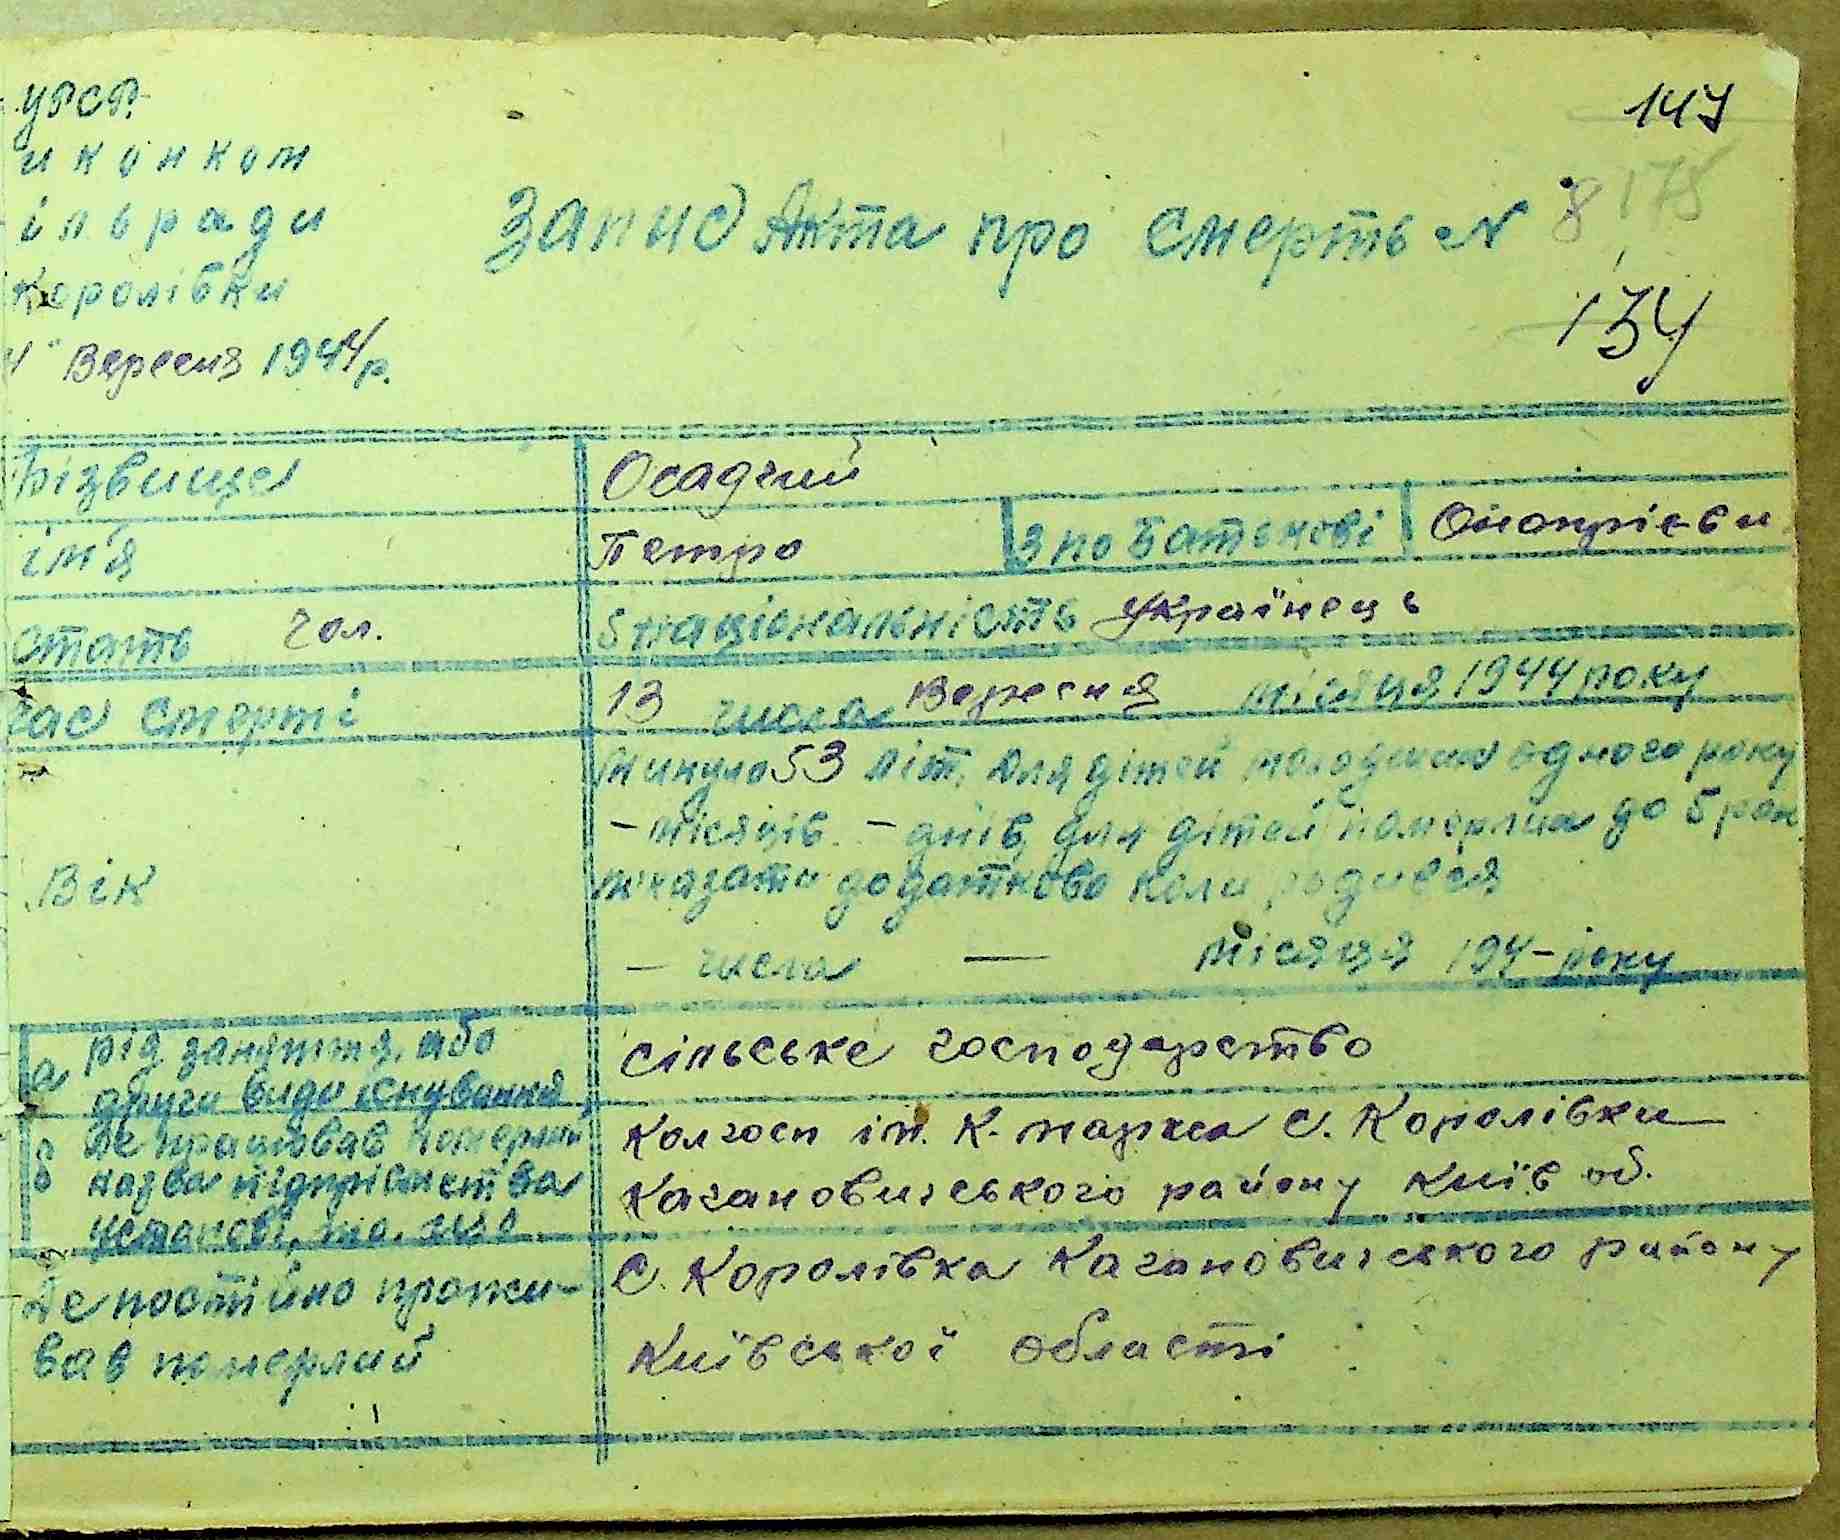 УРСР
иконком
ільради
Королівки
Вересня 1944 р.
147
Запис Акта про смерть N 8 175
134
Прізвище Осадчий
ім'я Петро 3 по Батькові Онопрієви
стать чол. 5 національність українець
час смерті 13 числа Вересня місяця 1944 року
Вік
минуло 53 літ, для дітей молодших одного року
– місяців – днів, для дітей померлих до 5 рок
показати додатково коли родився
– числа — місяця 194– року
а рід заняття, або
други види існування
сільське господарство
б де працював померлий
назва підприємства
установі, та
колгосп ім. К. маркса с. Королівки
Кагановичського району Київ об.
Де постійно прожи-
вав померлий
с. Королівка Кагановичського району
Київської області